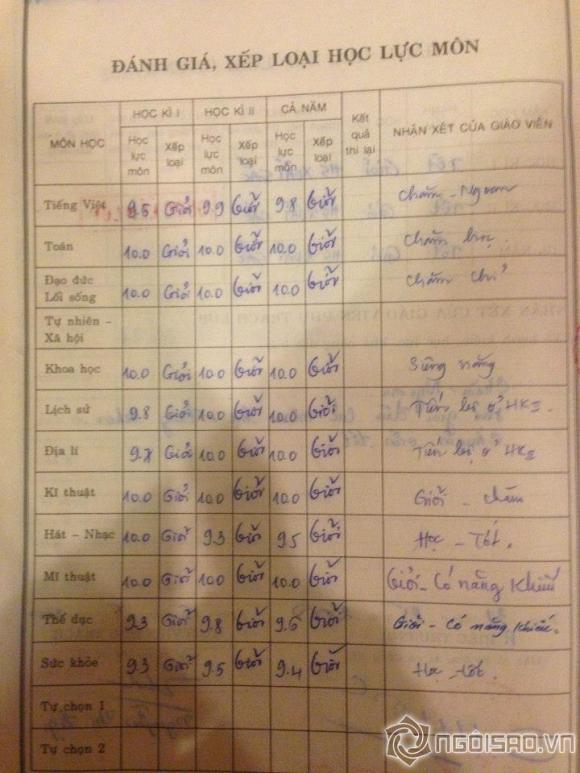 ĐÁNH GIÁ, XẾP LOẠI HỌC LỰC MÔN
MÔN HỌC HỌC KÌ I HỌC KÌ II CẢ NĂM Kết quả thi lại NHẬN XÉT CỦA GIÁO VIÊN
Học lực môn Xếp loại Học lực môn Xếp loại Học lực môn Xếp loại
Tiếng Việt 9.5 Giỏi 9.9 Giỏi 9.8 Giỏi Chăm - Ngoan
Toán 10.0 Giỏi 10.0 Giỏi 10.0 Giỏi Chăm học.
Đạo đức
Lối sống 10.0 Giỏi 10.0 Giỏi 10.0 Giỏi Chăm chỉ
Tự nhiên -
Xã hội
Khoa học 10.0 Giỏi 10.0 Giỏi 10.0 Giỏi Siêng năng
Lịch sử 9.8 Giỏi 10.0 Giỏi 10.0 Giỏi Tiến bộ ở HKII
Địa lí 9.8 Giỏi 10.0 Giỏi 10.0 Giỏi Tiến bộ ở HKII
Kĩ thuật 10.0 Giỏi 10.0 Giỏi 10.0 Giỏi Giỏi - chăm
Hát - Nhạc 10.0 Giỏi 9.3 Giỏi 9.5 Giỏi Học - Tốt.
Mĩ thuật 10.0 Giỏi 10.0 Giỏi 10.0 Giỏi Giỏi - Có năng khiếu
Thể dục 9.3 Giỏi 9.8 Giỏi 9.6 Giỏi Giỏi - Có năng khiếu.
Sức khỏe 9.3 Giỏi 9.5 Giỏi 9.4 Giỏi Học tốt.
Tự chọn 1
Tự chọn 2
NGÔISAO.VN